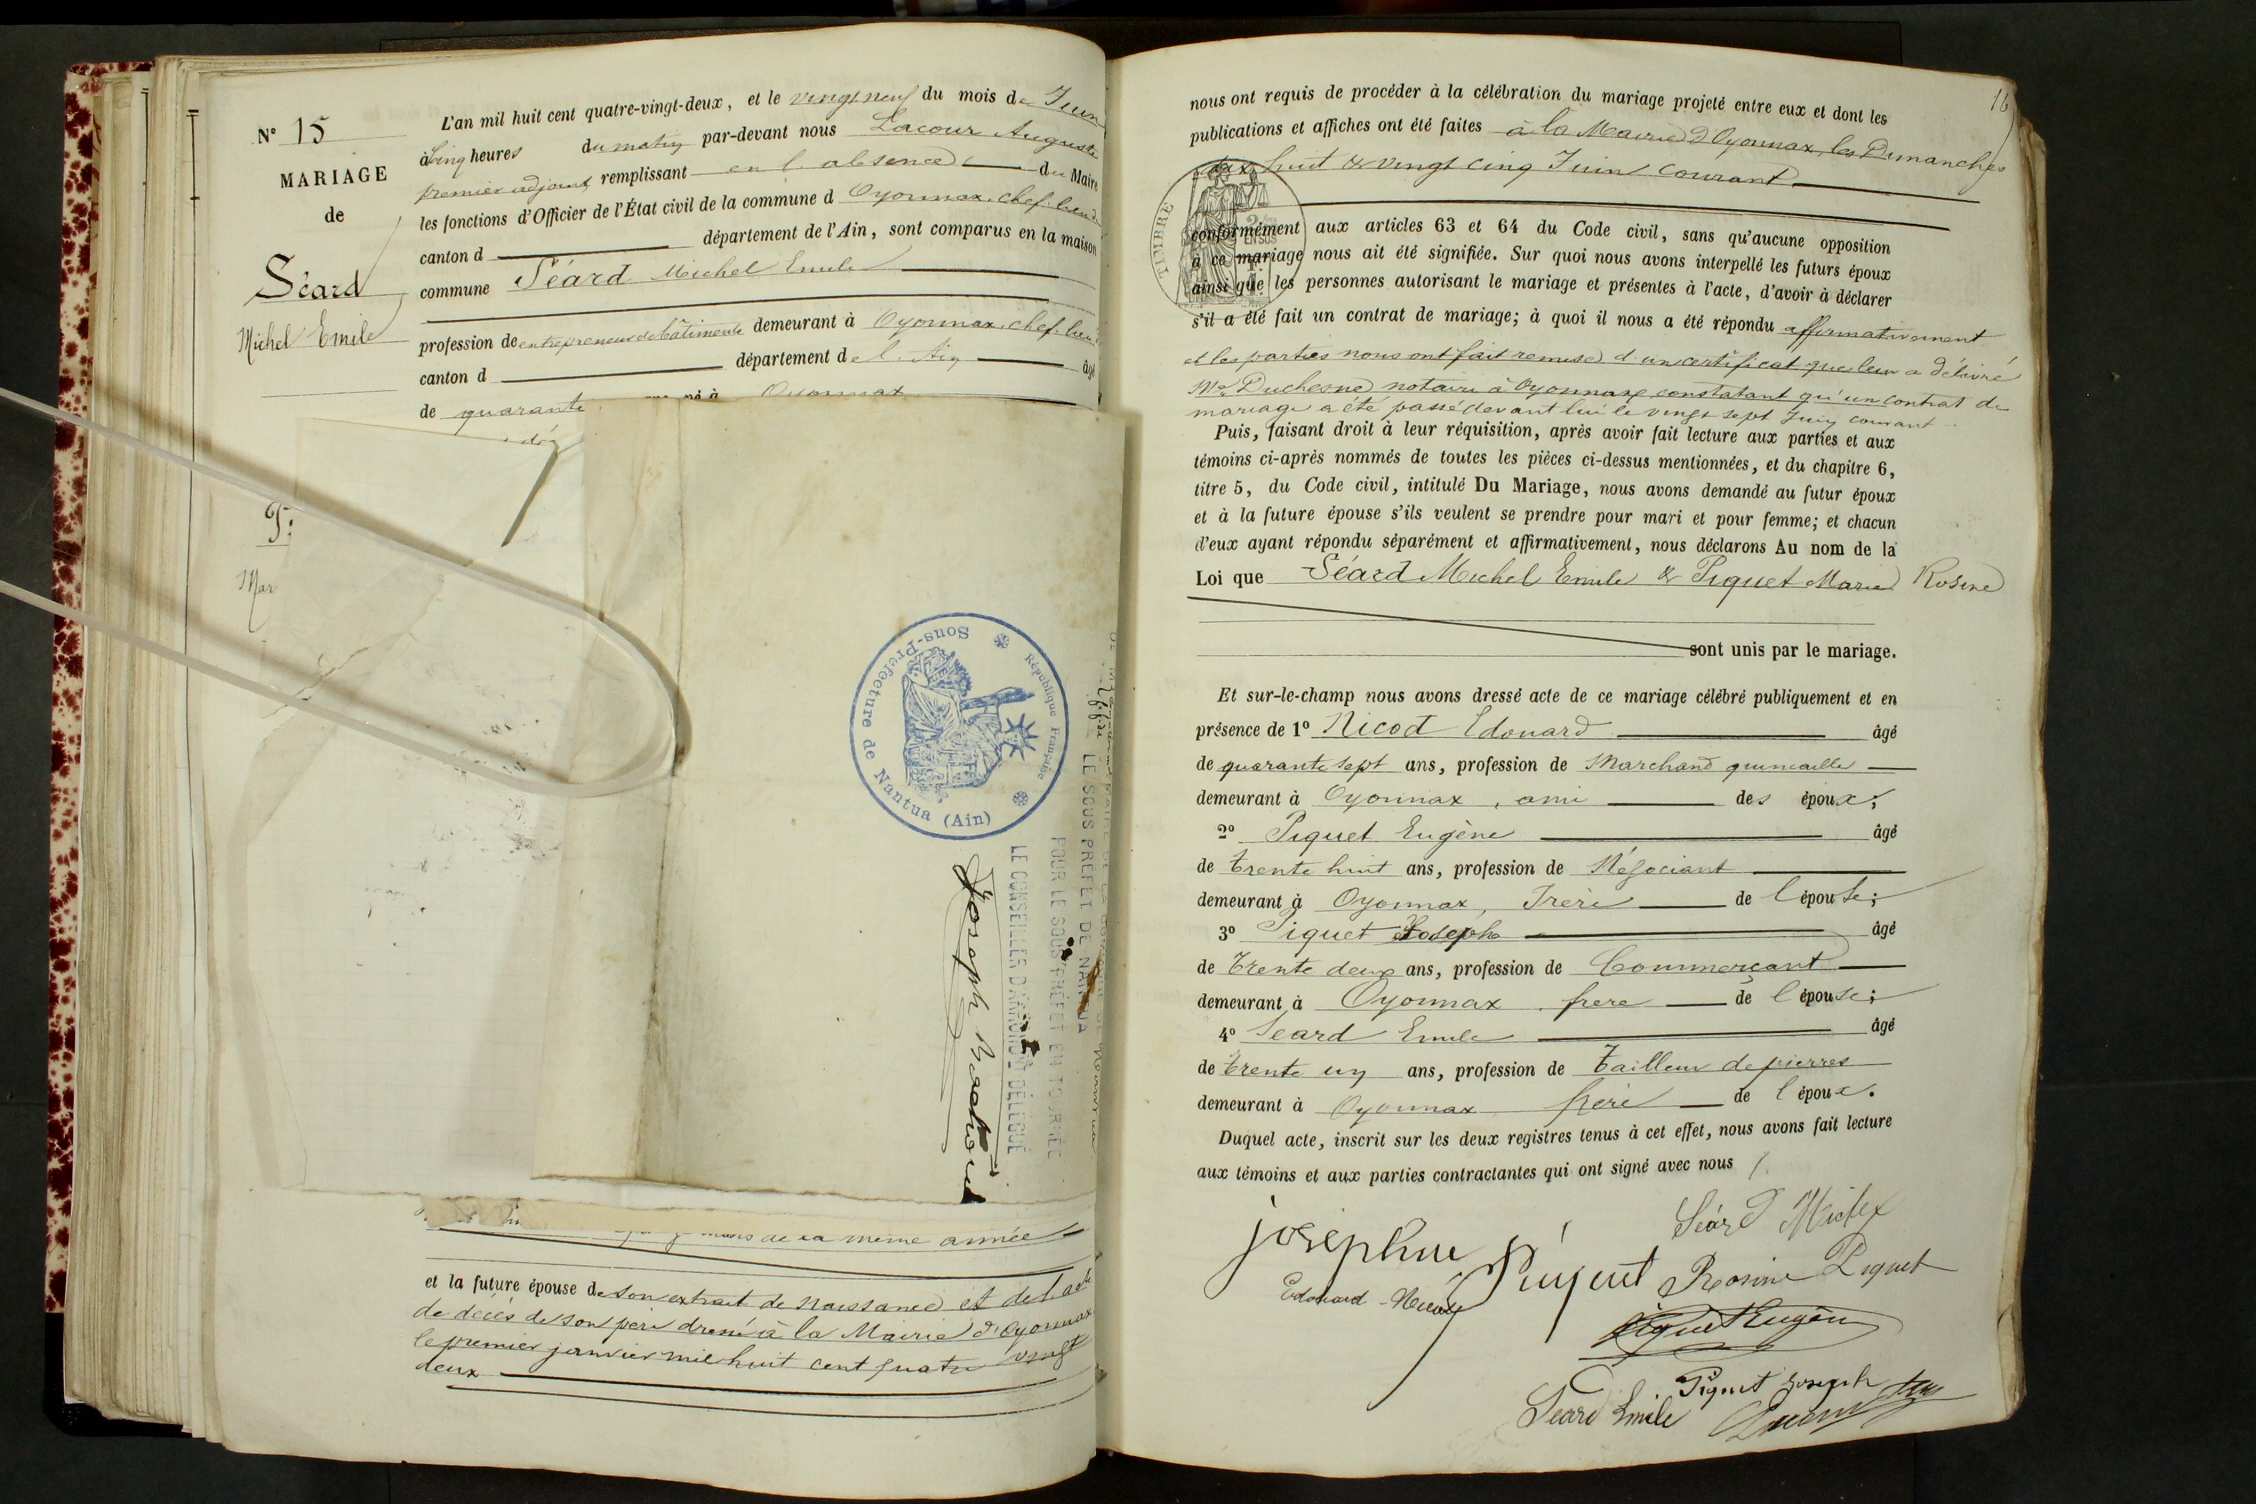 N° 15
MARIAGE
de
Séard
Michel Emile
L'an mil huit cent quatre-vingt-deux, et le vingt neuf du mois de Juin
à Cinq heures du matin par-devant nous Lacour Auguste
premier adjoint remplissant en l'absence du Maire
les fonctions d'Officier de l'État civil de la commune d Oyonnax, chef-lieu de
canton d département de l'Ain, sont comparus en la maison
commune Séard Michel Emile
profession de entrepreneur de bâtiments demeurant à Oyonnax, chef-lieu
canton d département de l'Ain âgé
de quarante Oyonnax
Mar
Sous-Préfecture de Nantua (Ain)
République Française
LE SOUS PREFET DE NANTUA
POUR LE SOUS PREFET EN TOURNÉE
LE CONSEILLER D'ARROND.T DÉLÉGUÉ
Joseph
mars de la même année
et la future épouse de son extrait de naissance et de l'acte
de décès de son père dressé à la Mairie d'Oyonnax
le premier janvier mil huit cent quatre vingt
deux
16
nous ont requis de procéder à la célébration du mariage projeté entre eux et dont les
publications et affiches ont été faites à la Mairie d'Oyonnax, les Dimanches
dix huit & vingt cinq Juin courant
TIMBRE
conformément aux articles 63 et 64 du Code civil, sans qu'aucune opposition
à ce mariage nous ait été signifiée. Sur quoi nous avons interpellé les futurs époux
ainsi que les personnes autorisant le mariage et présentes à l'acte, d'avoir à déclarer
s'il a été fait un contrat de mariage; à quoi il nous a été répondu affirmativement
et les parties nous ont fait remise d'un certificat que leur a délivré
Me Duchesne notaire à Oyonnax constatant qu'un contrat de
mariage a été passé devant lui le vingt sept Juin courant
Puis, faisant droit à leur réquisition, après avoir fait lecture aux parties et aux
témoins ci-après nommés de toutes les pièces ci-dessus mentionnées, et du chapitre 6,
titre 5, du Code civil, intitulé Du Mariage, nous avons demandé au futur époux
et à la future épouse s'ils veulent se prendre pour mari et pour femme; et chacun
d'eux ayant répondu séparément et affirmativement, nous déclarons Au nom de la
Loi que Séard Michel Emile & Piquet Marie Rosine
sont unis par le mariage.
Et sur-le-champ nous avons dressé acte de ce mariage célébré publiquement et en
présence de 1° Nicod Edouard âgé
de quarante sept ans, profession de Marchand quincaille
demeurant à Oyonnax, ami des époux;
2° Piquet Eugène âgé
de trente huit ans, profession de Négociant
demeurant à Oyonnax, Frère de l'épouse;
3° Piquet Joseph âgé
de trente deux ans, profession de Commerçant
demeurant à Oyonnax, frère de l'épouse;
4° Séard Emile âgé
de trente un ans, profession de Tailleur de pierres
demeurant à Oyonnax frère de l'époux.
Duquel acte, inscrit sur les deux registres tenus à cet effet, nous avons fait lecture
aux témoins et aux parties contractantes qui ont signé avec nous
Séard Michel
josephine Piquet Rosine Piquet
Edouard Nicod
Piquet Eugène
Piquet Joseph
Séard Emile